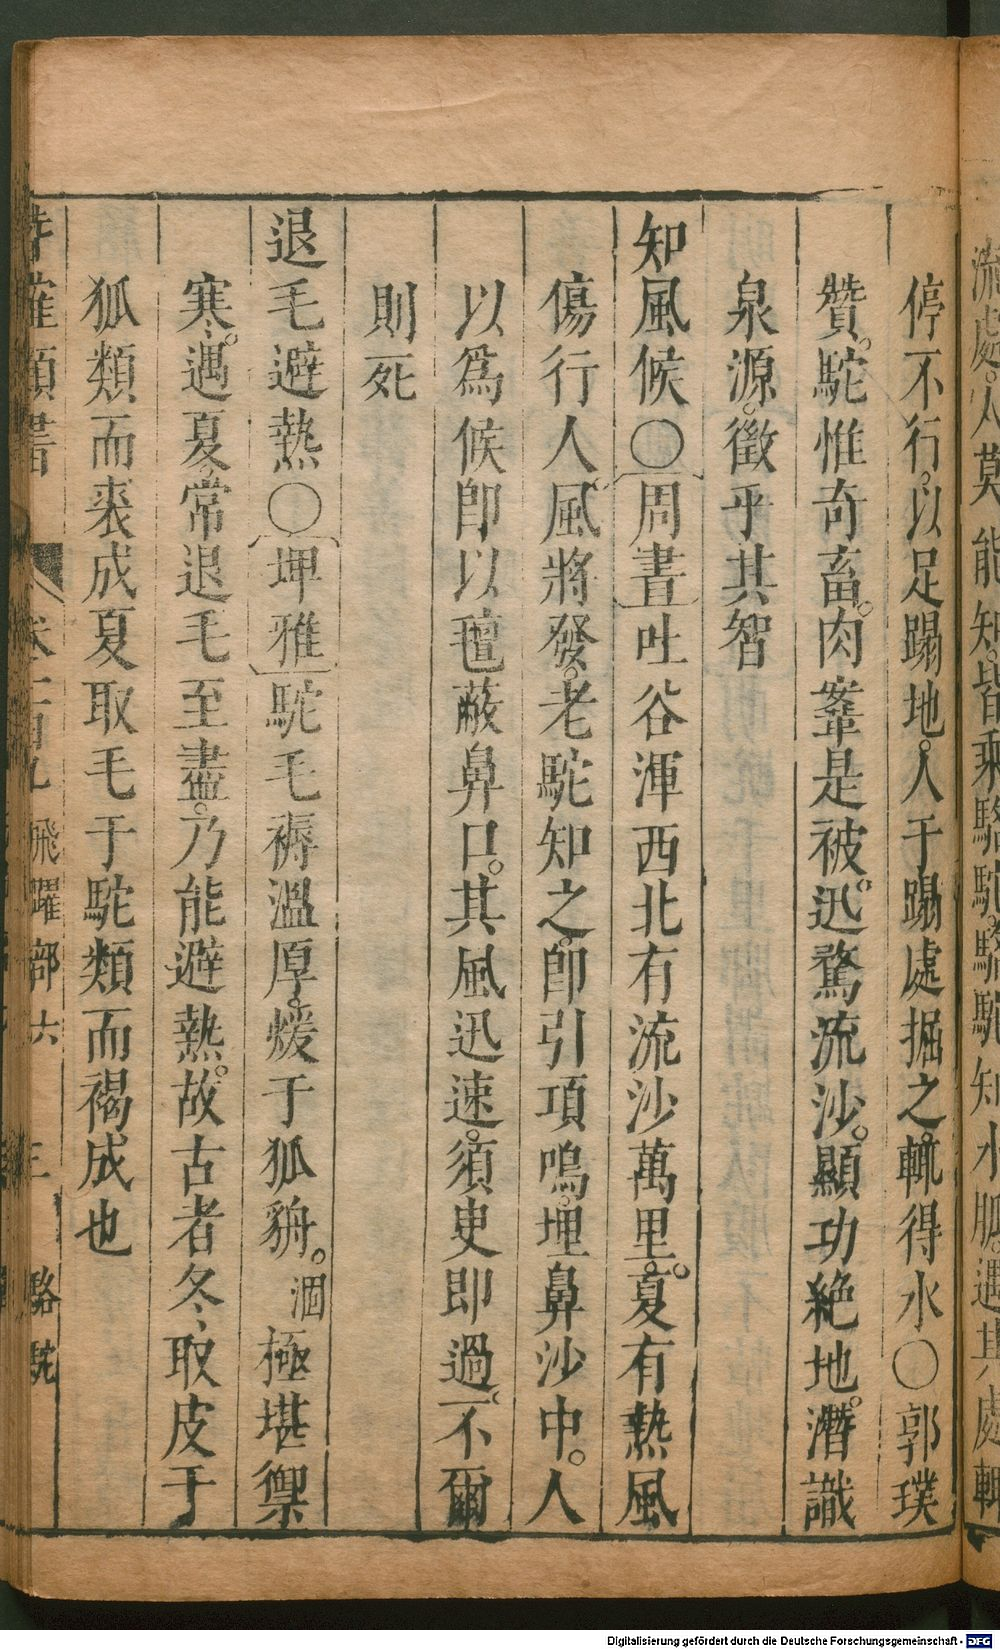 流處人莫能知皆乘駱駝駱駝知水脈遇其處輒
停不行以足蹋地人于蹋處掘之輒得水〇郭璞
贊駝惟奇畜肉鞌是被迅騖流沙顯功絶地潛識
泉源徵乎其智
知風候〇周書吐谷渾西北有流沙萬里夏有熱風
傷行人風將發老駝知之卽引項鳴埋鼻沙中人
以爲候卽以氊蔽鼻口其風迅速須臾即過不爾
則死
退毛避熱〇埤雅駝毛褥溫厚煖于狐貈涸極堪禦
寒遇夏常退毛至盡乃能避熱故古者冬取皮于
狐類而裘成夏取毛于駝類而褐成也
類書 卷一百九 飛躍部六 三 駱駝
Digitalisierung gefördert durch die Deutsche Forschungsgemeinschaft - DFG